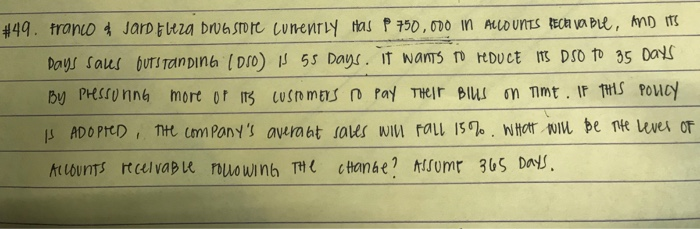 #49. Franco & Jaro Eleza Drugstore currently has ₱ 750,000 in accounts receivable, and its
Days sales outstanding (DSO) is 55 Days. It wants to reduce its DSO to 35 Days
By pressuring more of its customers to pay their bills on time. If this policy
is adopted, the company's average sales will fall 15%. What will be the level of
accounts receivable following the change? Assume 365 Days.